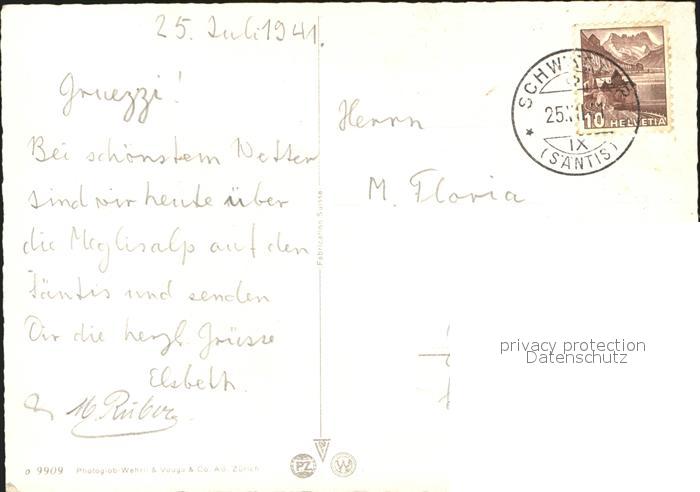 25. Juli 1941.
Gruezzi!
Bei schönstem Wetter
sind wir heute über
die Meglisalp auf den
Säntis und senden
Dir die herzl. Grüsse
Elsbeth.
o 9909 Photoglob-Wehrli & Vouga & Co. AG. Zürich
Fabrication Suisse
PZ
W
Herrn
M. Floria
10 HELVETIA
25.
IX
(SÄNTIS)
privacy protection
Datenschutz